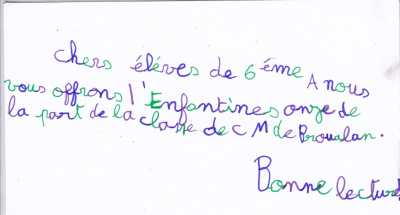 chers éléves de 6éme A nous
vous offrons l'Enfantines onze de
la part de la classe de CM de Broualan.
Bonne lecture!